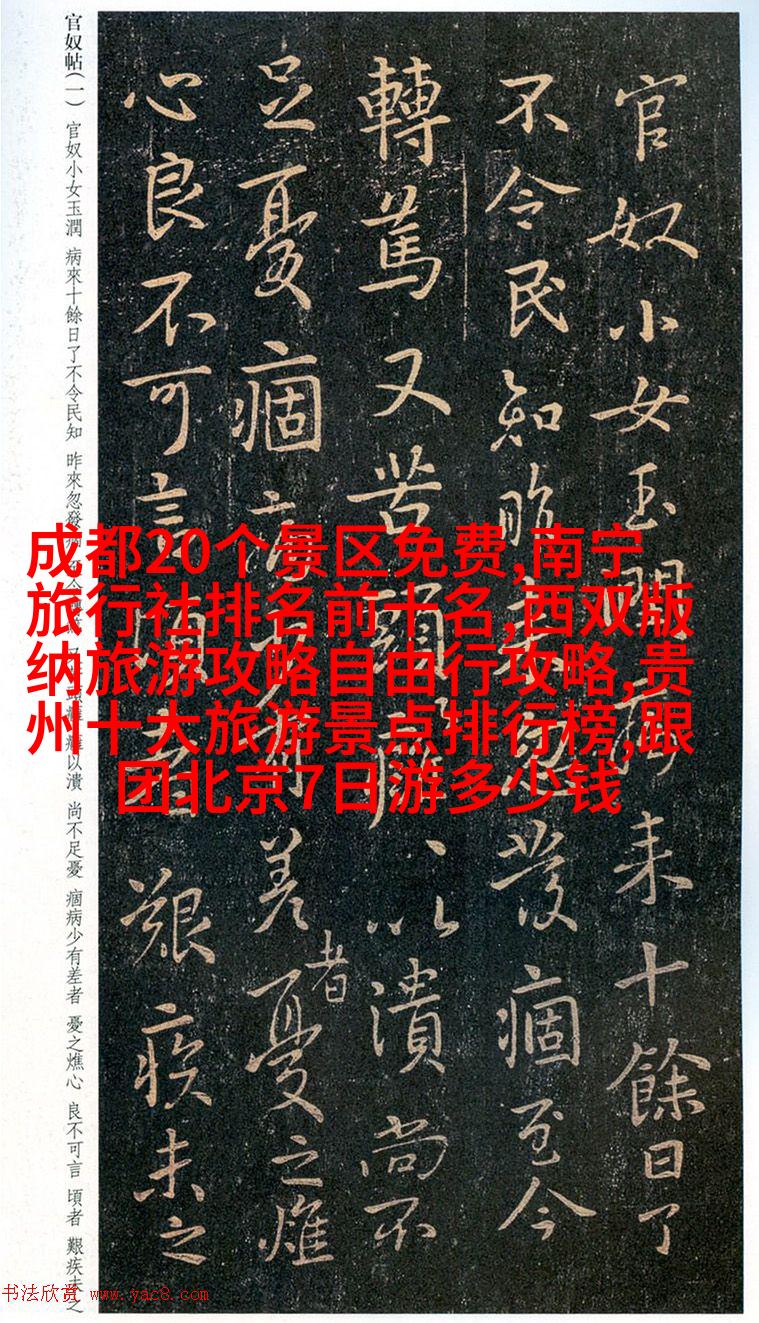 官奴帖(一) 官奴小女玉潤 病來十餘日了不令民知 昨來忽發痼 至今 又苦 以潰 尚不足憂 痼病少有差者 憂之燋心 良不可言 頃者 艱疾未之
官奴小女玉潤病来十餘日了
不令民知昨来忽發痼至今
轉篤又苦頭癰、以潰尚不
足憂痼病少有差者憂之燋
心良不可言頃者艱疾未之
成都20个景区免费,南宁
旅行社排名前十名,西双版
纳旅游攻略自由行攻略,贵
州十大旅游景点排行榜,跟
团北京7日游多少钱
书法欣赏 www.yac8.com